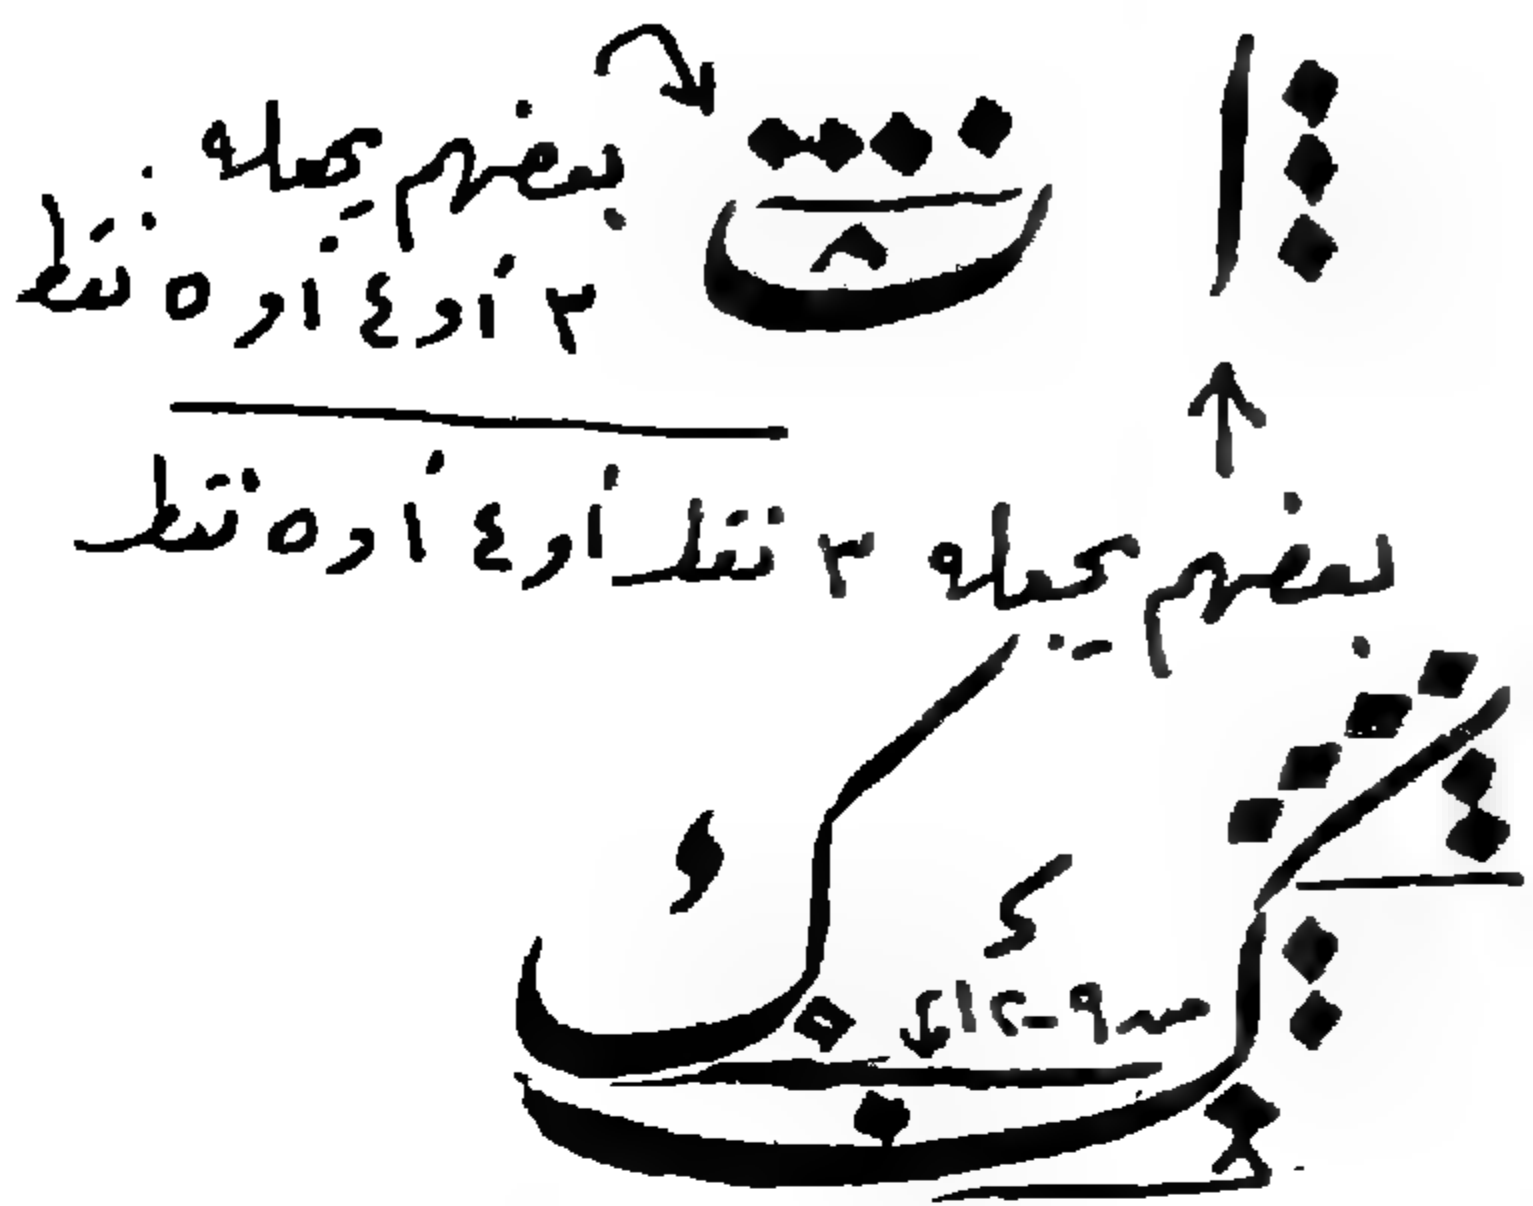 بعضهم يجعله
٣ أو ٤ أو ٥ نقط
ا
بعضهم يجعله ٣ نقط أو ٤ أو ٥ نقط
ك
من ٩-١٢
ك